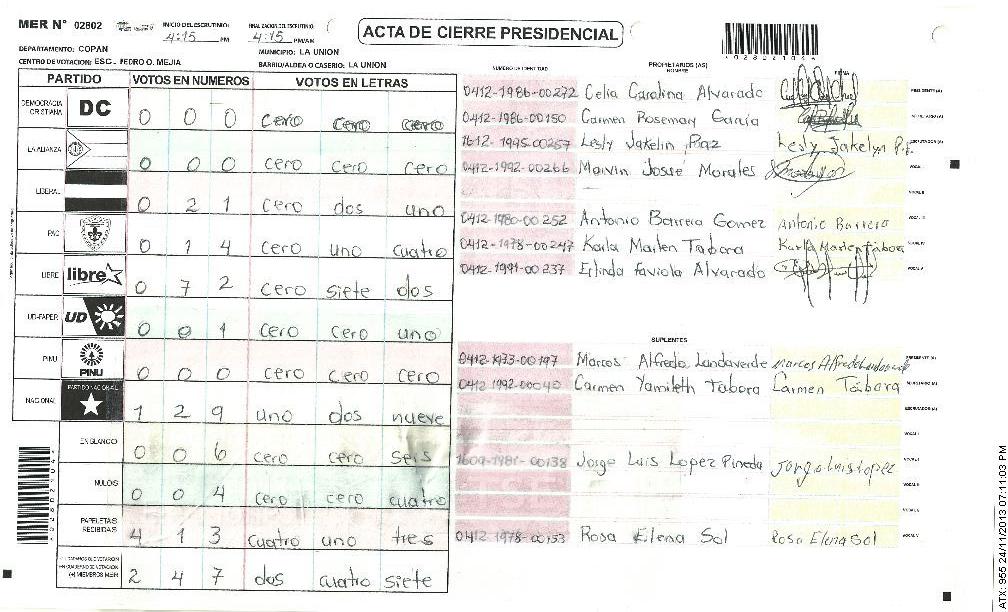 MER N° 02802
INICIO DEL ESCRUTINIO: 4:15 PM
FINALIZACION DEL ESCRUTINIO: 4:15 PM/AM
ACTA DE CIERRE PRESIDENCIAL
DEPARTAMENTO: COPAN
MUNICIPIO: LA UNION
CENTRO DE VOTACION: ESC. PEDRO O. MEJIA
BARRIO/ALDEA O CASERIO: LA UNION
PARTIDO VOTOS EN NUMEROS VOTOS EN LETRAS
DEMOCRACIA CRISTIANA DC 0 0 0 cero cero cero
LA ALIANZA 0 0 0 cero cero cero
LIBERAL 0 2 1 cero dos uno
PAC 0 1 4 cero uno cuatro
LIBRE libre 0 7 2 cero siete dos
UD-FAPER UD 0 0 1 cero cero uno
PINU PINU 0 0 0 cero cero cero
NACIONAL PARTIDO NACIONAL 1 2 9 uno dos nueve
EN BLANCO 0 0 6 cero cero seis
NULOS 0 0 4 cero cero cuatro
PAPELETAS RECIBIDAS 4 1 3 cuatro uno tres
(+) MIEMBROS MER 2 4 7 dos cuatro siete
NUMERO DE IDENTIDAD PROPIETARIOS (AS) NOMBRE FIRMA
0412-1986-00272 Celia Carolina Alvarado PRESIDENTE (A)
0412-1986-00150 Carmen Rosemary García SECRETARIO (A)
1612-1995-00257 Lesly Jakelin Paz Lesly Jakelyn P. ESCRUTADOR (A)
0412-1992-00266 Maivin Josué Morales VOCAL I
VOCAL II
0412-1980-00252 Antonio Barrera Gomez Antonio Barrera VOCAL III
0412-1978-00247 Karla Marlen Tabora Karla Marlen Tábora VOCAL IV
0412-1991-00237 Erlinda Faviola Alvarado VOCAL V
SUPLENTES
0412-1973-00197 Marcos Alfredo Landaverde Marcos Alfredo Landaverde PRESIDENTE (A)
0412-1992-00040 Carmen Yamileth Tabora Carmen Tábora SECRETARIO (A)
ESCRUTADOR (A)
VOCAL I
1609-1981-00138 Jorge Luis Lopez Pineda Jorge Luis Lopez
0412-1978-00153 Rosa Elena Sol Rosa Elena Sol VOCAL V
ATX: 955 24/11/2013 07:11:03 PM